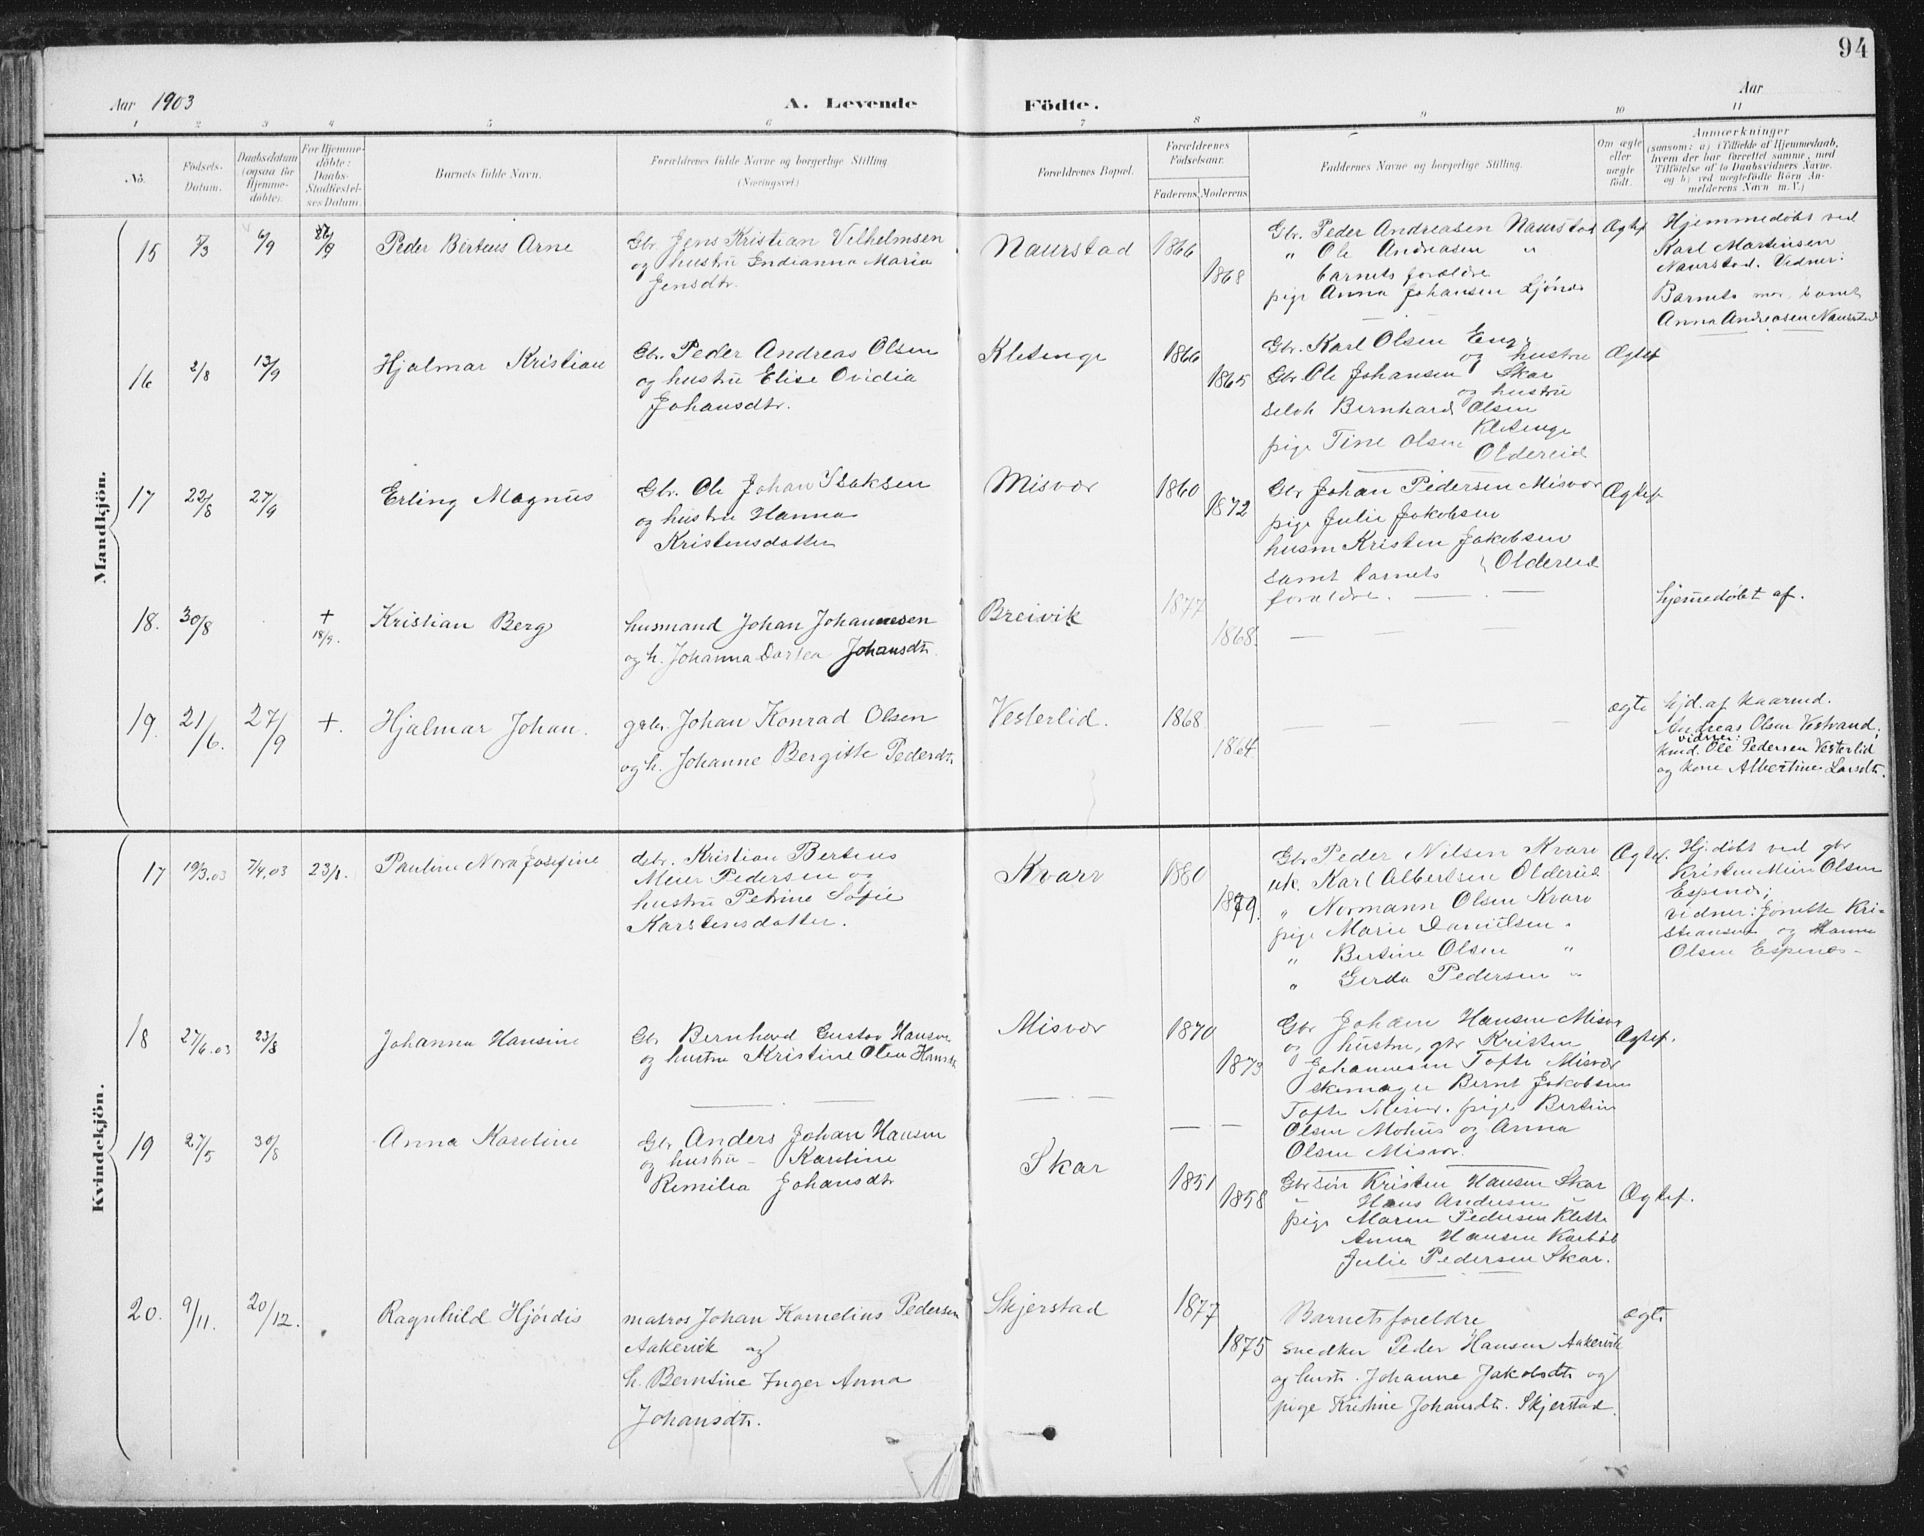 94
Aar 1903
A. Levende
Födte.
Aar
1 2 3 4 5 6 7 8 9 10 11
No.
Födsels-Datum.
Daabsdatum (ogsaa for Hjemmedöbte).
For Hjemmedöbte: Daabs-Stadfæstelses Datum.
Barnets fulde Navn.
Forældrenes fulde Navne og borgerlige Stilling
(Næringsvei)
Forældrenes Bopæl.
Forældrenes Födselsaar.
Faderens. Moderens.
Faddernes Navne og borgerlige Stilling.
Om ægte eller uægte födt.
Anmærkninger
(saasom: a) i Tilfælde af Hjemmedaab, hvem der har forrettet samme, med Tilföielse af to Daabsvidners Navne. og b) ved uægtefödte Börn Anmelderens Navn m. V.)
Mandkjön.
15 6/9 Peder Berteus Arne
Gbr. Jens Kristian Vilhelmsen
og hustru Indianna Maria
Jensdtr.
Naurstad 1866 1868
Gbr. Peder Andreasen Naurstad
" Ole Andreasen "
barnets forældre
pige Anna Johansen Ljönes
Ægtef
Hjemmedöbt ved
Karl Martinsen
Naurstad. Vidner:
Barnets mor, samt
Anna Andreasen Naurstad
16 2/8 13/9 Hjalmar Kristian
Gbr. Peder Andreas Olsen
og hustru Elise Ovidia
Johansdtr.
Kletinge 1866 1865
Gbr. Karl Olsen Eng,
og hustru
Gbr. Ole Johansen Skar
og hustru
Bernhard Olsen
Kletinge
pige Tine Olsen Oldereid
Ægtef
17 22/8 27/9 Erling Magnus
Gbr. Ole Johan Isaksen
og hustru Hanna
Kristensdatter
Misvær 1860 1872
Gbr Johan Pedersen Misvær
pige Julie Jakobsen
husm Kristen Jakobsen
Oldereid
samt barnets
forældre.
Ægtef
18. 30/8 + 18/9. Kristian Berg
husmand Johan Johannesen
og h. Johanna Dortea Johansdtr.
Breivik 1877 1868.
hjemmedöbt af.
19. 21/6. 27/9 +. Hjalmar Johan.
gbr. Johan Konrad Olsen
og h. Johanne Bergitte Pedersdtr
Vesterlid. 1868 1864
ægte
hjd. af kaarmd.
Andreas Olsen Vestvand;
vidner:
kmd. Ole Pedersen Vesterlid
og kone Albertine Larsdtr.
Kvindekjön.
17 19/3.03 7/4.03 Pauline Nora Josefine
Gbr. Kristian Berteus
Meier Pedersen og
hustru Petrine Sofie
Karstensdatter.
Kvarv 1880 1879.
Gbr Peder Nilsen Kvarv
uk. Karl Albertsen Oldereid
" Normann Olsen Kvarv
pige Marie Danielsen "
" Bertine Olsen "
" Gerda Pedersen "
Ægtef.
Hj. döbt ved gbr
Kristen Meier Olsen
Espenes;
vidner: Jonette Kri-
stiansen og Hanna
Olsen Espenes-
18 27/6.03 23/8 Johanna Hansine
Gbr Bernhard Gustav Hansen
og hustru Kristine Olea Hansdtr
Misvær 1870 1873
Gbr Johan Hansen Misvær
og hustru, gbr Kristen
Johannesen Tofte Misvær
skomager Bernt Jakobsen
Tofte Misvær. pige Bertine
Olsen Mohus og Anna
Olsen Misvær.
Ægtef.
19 27/5 30/8 Anna Karoline
Gbr Anders Johan Hansen
og hustru - Karoline
Remilia Johansdtr
Skar 1851 1858
Gbr sön Kristen Hansen Skar
Hans Andersen "
pige Maren Pedersen Klette
Anna Hansen Karbøl
Julie Pedersen Skar.
Ægtef.
20. 9/11. 20/12. Ragnhild Hjördis
matros Johan Kornelius Pedersen
Aakervik og
h. Berntine Inger Anna
Johansdtr.
Skjerstad 1877 1875
Barnets foreldre
snedker Peder Hansen Aakervik
og hustr. Johanne Jakobsdtr og
pige Kristine Johansdtr. Skjerstad.
ægte